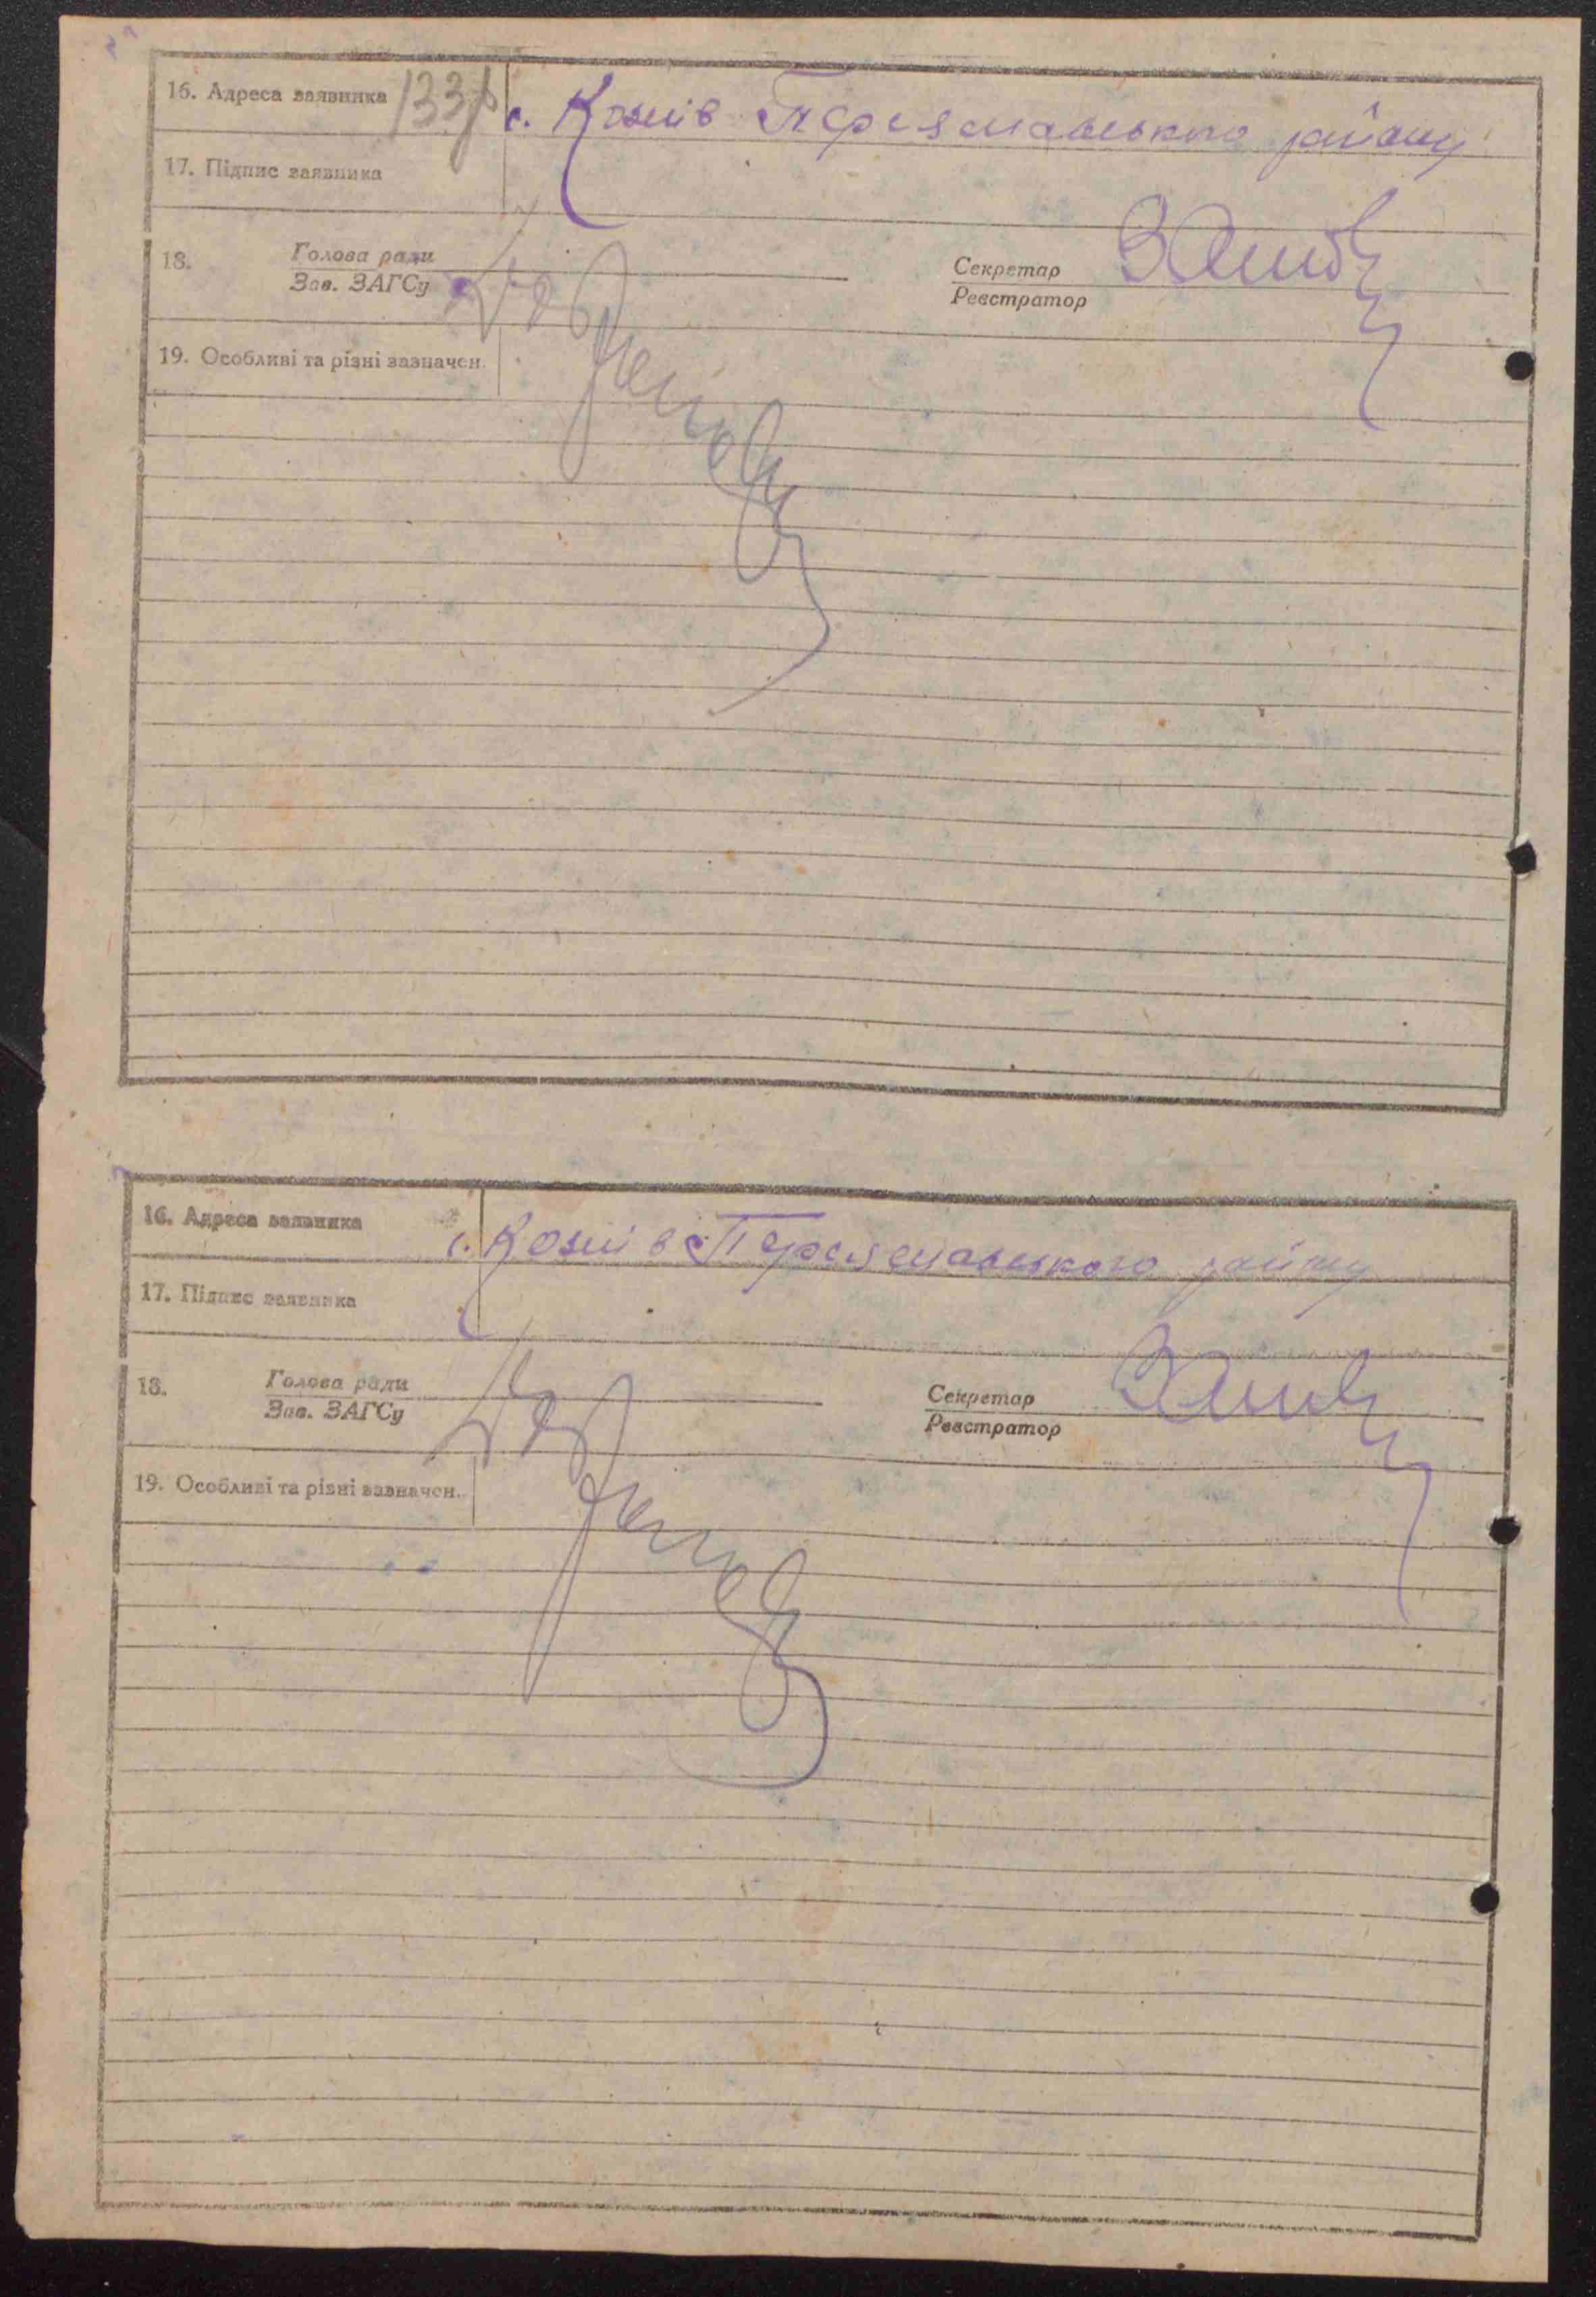 16. Адреса заявника 133
с. Козлів Переяславського району
17. Підпис заявника
18. Голова ради
Зав. ЗАГСу
Секретар
Реєстратор
19. Особливі та різні зазначен.
16. Адреса заявника с. Козлів Переяславського району
17. Підпис заявника
18. Голова ради
Зав. ЗАГСу
Секретар
Реєстратор
19. Особливі та різні зазначен.